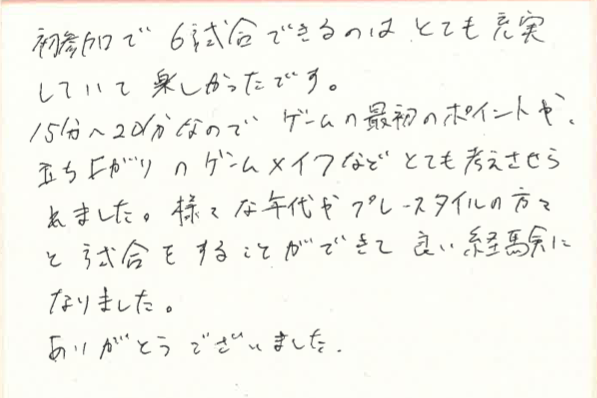 初参加で 6試合できるのは とても充実
していて 楽しかったです。
15分〜20分なので ゲームの最初のポイントや、
立ち上がりのゲームメイクなど とても考えさせら
れました。様々な年代や プレースタイルの方々
と試合をすることができて 良い経験に
なりました。
ありがとうございました.